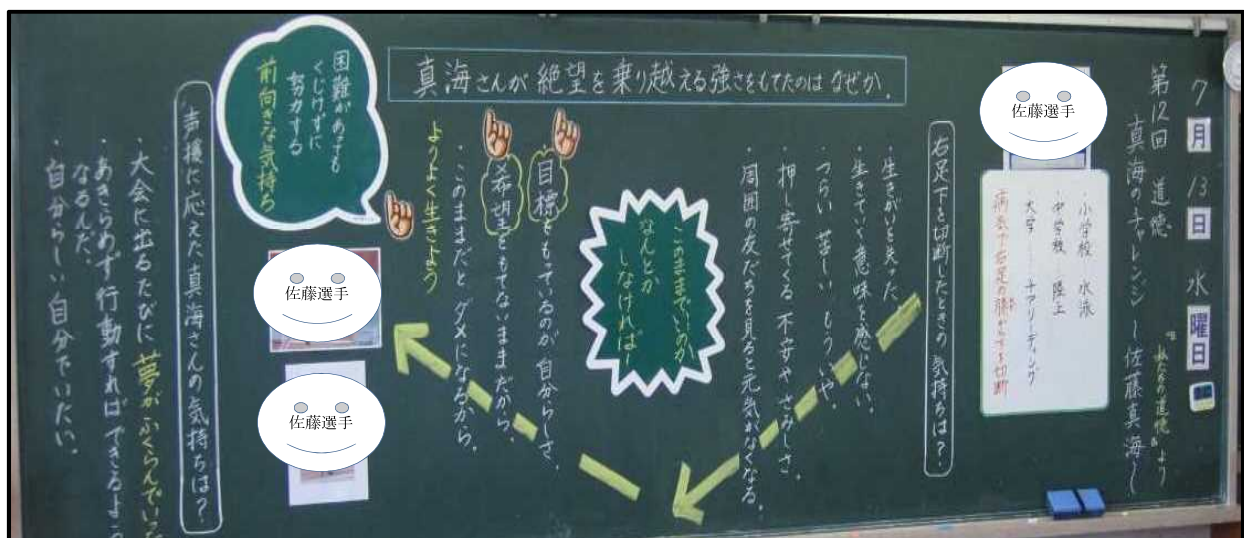 7月13日 水曜日
第12回 道徳 『私たちの道徳』より
真海のチャレンジ ー佐藤真海ー
佐藤選手
・小学校 水泳
・中学校 陸上
・大学 チアリーディング
病気で右足の膝から下を切断
真海さんが絶望を乗り越える強さをもてたのはなぜか。
右足下を切断したときの気持ちは?
・生きがいを失った
・生きていく意味を感じない。
・つらい 苦しい もういや。
・押し寄せてくる不安やさみしさ。
・周囲の友だちを見ると元気がなくなる。
このままでいいのか
なんとか
しなければ!
・目標をもっているのが自分らしさ。
・希望をもてないままだから。
・このままだとダメになるから。
よりよく生きよう
困難があっても
くじけずに
努力する
前向きな気持ち
佐藤選手
佐藤選手
声援に応えた真海さんの気持ちは?
・大会に出るたびに夢がふくらんでいった
・あきらめず行動すればできるよう
なるんだ。
・自分らしい自分でいたい。